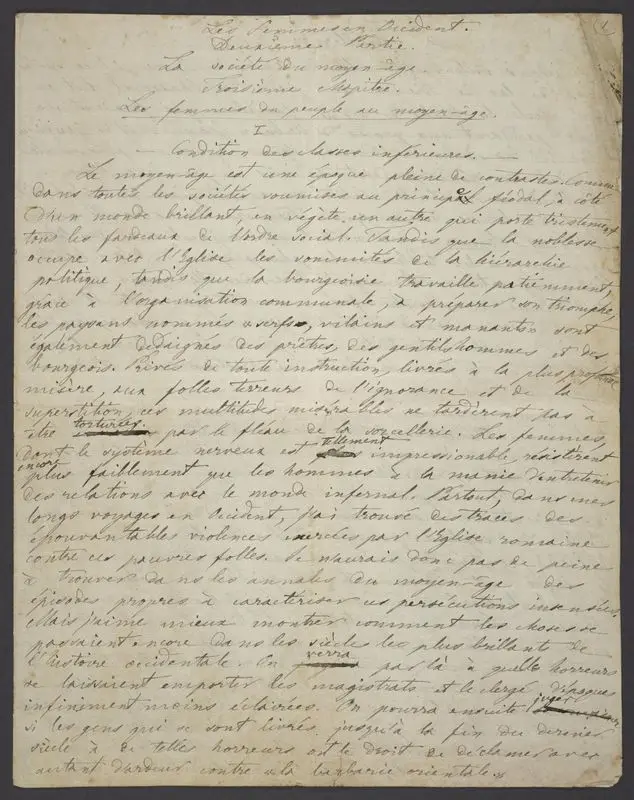 1
Les Femmes en Occident.
Deuxième Partie.
La société du moyen-âge
Troisième Chapitre.
Les femmes du peuple au moyen-âge.
I
— Condition des classes inférieures. —
Le moyen-âge est une époque pleine de contrastes. Comme
dans toutes les sociétés soumises au principe féodal, à côté
d'un monde brillant, en végète un autre qui porte tristement
tous les fardeaux de l'ordre social. Tandis que la noblesse
occupe avec l'Eglise les sommités de la hiérarchie
politique, tandis que la bourgeoisie travaille patiemment,
grâce à l'organisation communale, à préparer son triomphe,
les paysans nommés serfs, vilains et manants sont
également dédaignés des prêtres, des gentilshommes et des
bourgeois. Privés de toute instruction, livrés à la plus profonde
misère, aux folles terreurs de l'ignorance et de la
superstition, ces multitudes misérables ne tardèrent pas à
être torturées par le fléau de la sorcellerie. Les femmes,
dont le système nerveux est tellement impressionable, résistèrent
encore plus faiblement que les hommes à la manie d'entretenir
des relations avec le monde infernal. Partout, dans mes
longs voyages en Occident, j'ai trouvé des traces des
épouvantables violences exercées par l'Eglise romaine
contre ces pauvres folles. Je n'aurais donc pas de peine
à trouver dans les annales du moyen-âge des
épisodes propres à caractériser ces persécutions insensées.
Mais j'aime mieux montrer comment les choses se
passaient encore dans les siècles les plus brillants de
l'histoire occidentale. On verra par là à quelles horreurs
se laissaient emporter les magistrats et le clergé d'époques
infiniment moins éclairées. On pourra ensuite juger
si les gens qui se sont livrés jusqu'à la fin du dernier
siècle à de telles horreurs ont le droit de déclamer avec
autant d'ardeur contre la barbarie orientale.